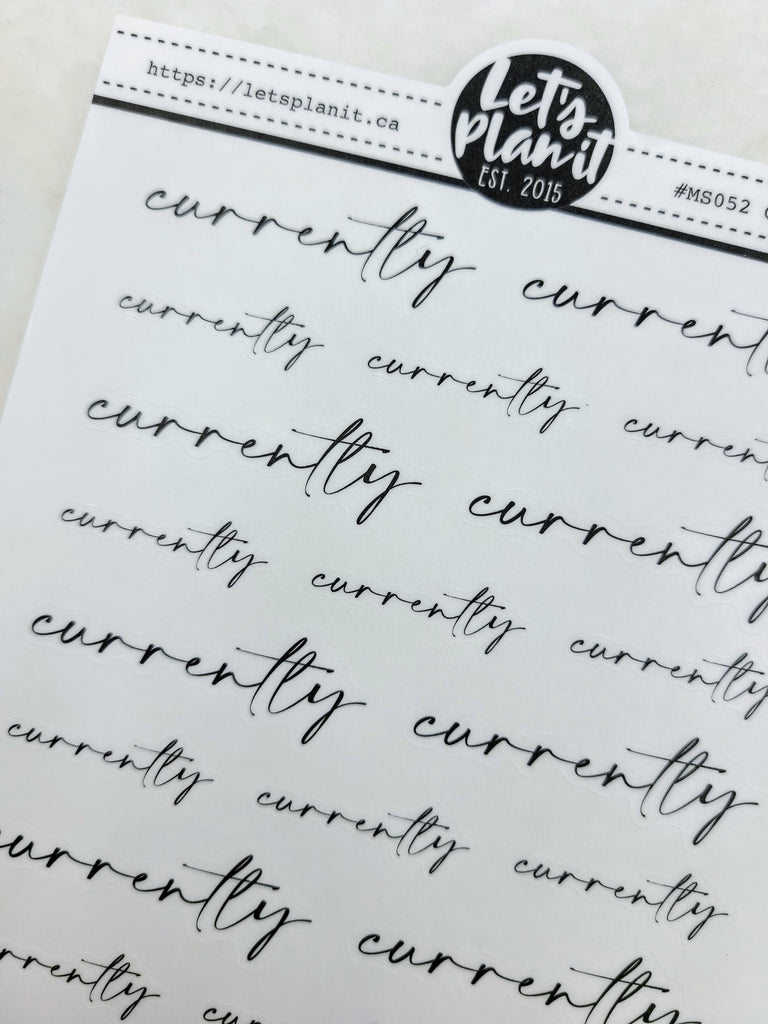 https://letsplanit.ca
Let's
Plan it
EST. 2015
#MS052
currently currently
currently currently currently
currently currently
currently currently currently
currently currently
currently currently currently
currently currently
currently